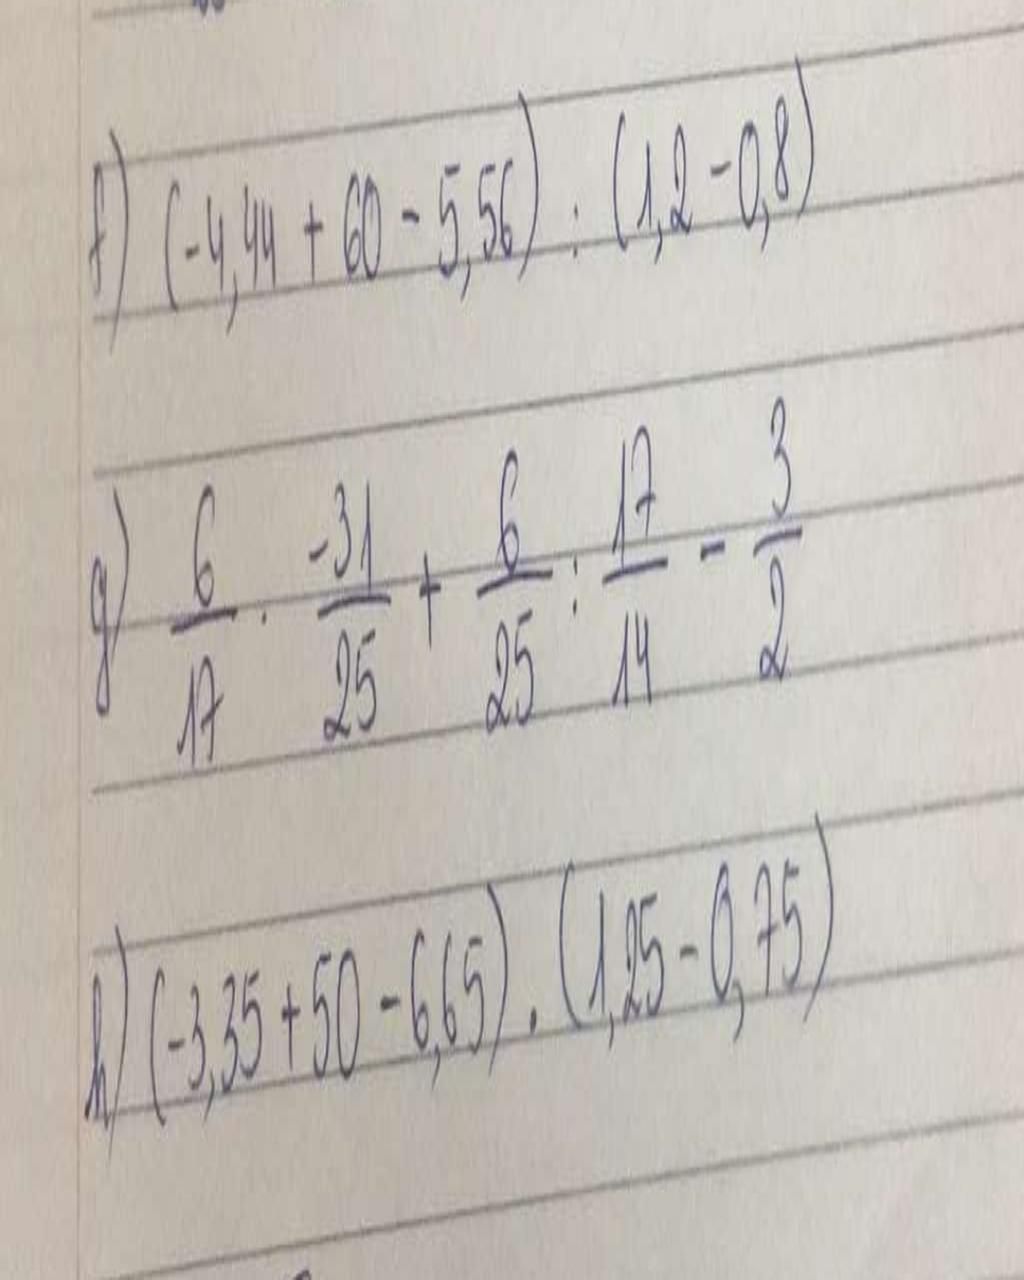 f) (-4,44 + 60 - 5,56) : (1,2 - 0,8)
g) 6/17 . -31/25 + 6/25 : 17/14 - 3/2
h) (-3,35 + 50 - 6,65) . (1,25 - 0,75)